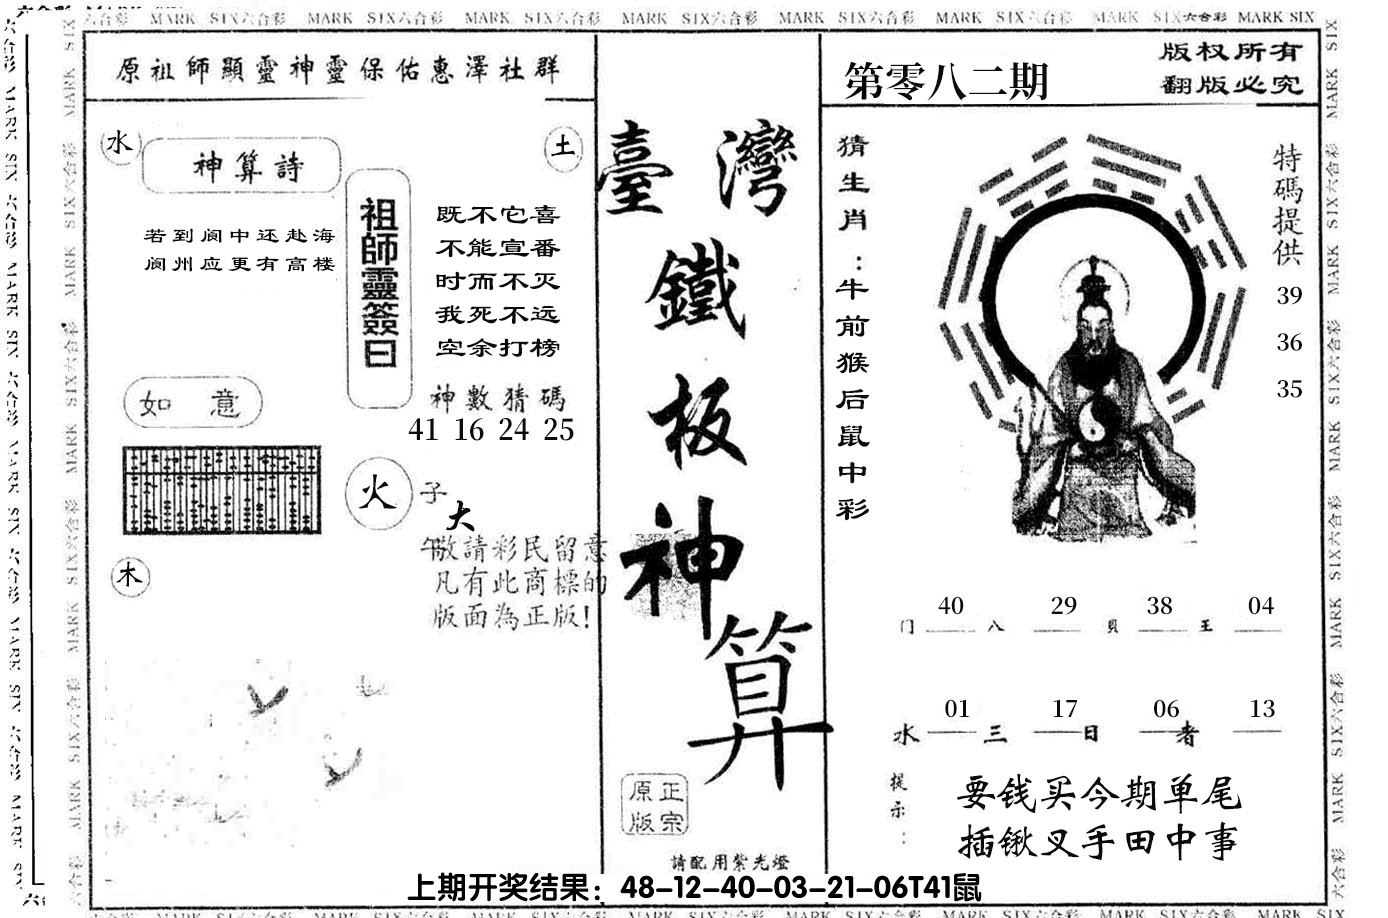 六合彩 MARK SIX六合彩 MARK SIX六合彩 MARK SIX六合彩 MARK SIX六合彩 MARK SIX六合彩 MARK SIX六合彩 MARK SIX六合彩 MARK SIX
原祖師顯靈神靈保佑惠澤社群
水
土
神算詩
若到阆中还赴海
阆州应更有高楼
祖師靈簽曰
既不它喜
不能宣番
时而不灭
我死不远
空余打榜
如意
神數猜碼
41 16 24 25
火
子
大
午
敬請彩民留意
凡有此商標的
版面為正版!
木
臺灣鐵板神算
原版
正宗
請配用紫光燈
第零八二期
版权所有
翻版必究
猜生肖:牛前猴后鼠中彩
特碼提供
39
36
35
40 29 38 04
门 八 貝 王
01 17 06 13
水 三 日 者
提示:
要钱买今期单尾
插锹叉手田中事
上期开奖结果：48-12-40-03-21-06T41鼠